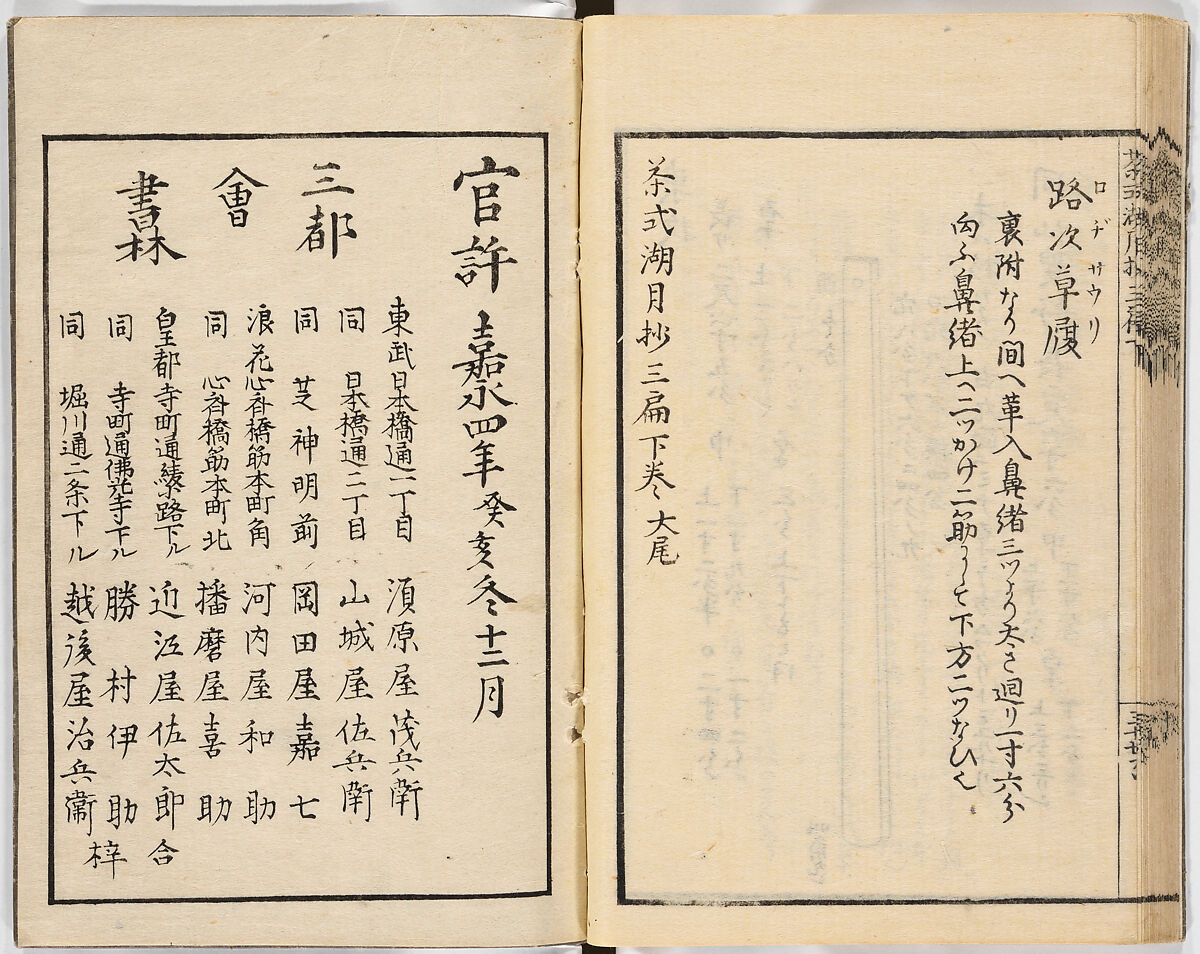 路次草履
ロヂサウリ
裏附なり間へ革入鼻緒三ツより太さ廻リ一寸六分
向ふ鼻緒上ヘ二ツかけ二筋りて下方二ツなひ也
茶式湖月抄三扁下巻大尾
官許
嘉永四年癸亥冬十二月
三都
會
書林
東武日本橋通一丁目 須原屋茂兵衛
同 日本橋通二丁目 山城屋佐兵衛
同 芝神明前 岡田屋嘉七
浪花心斎橋筋本町角 河内屋和助
同 心斎橋筋本町北 播磨屋喜助
皇都寺町通綾小路下ル 近江屋佐太郎
同 寺町通佛光寺下ル 勝村伊助
同 堀川通二条下ル 越後屋治兵衛
合梓